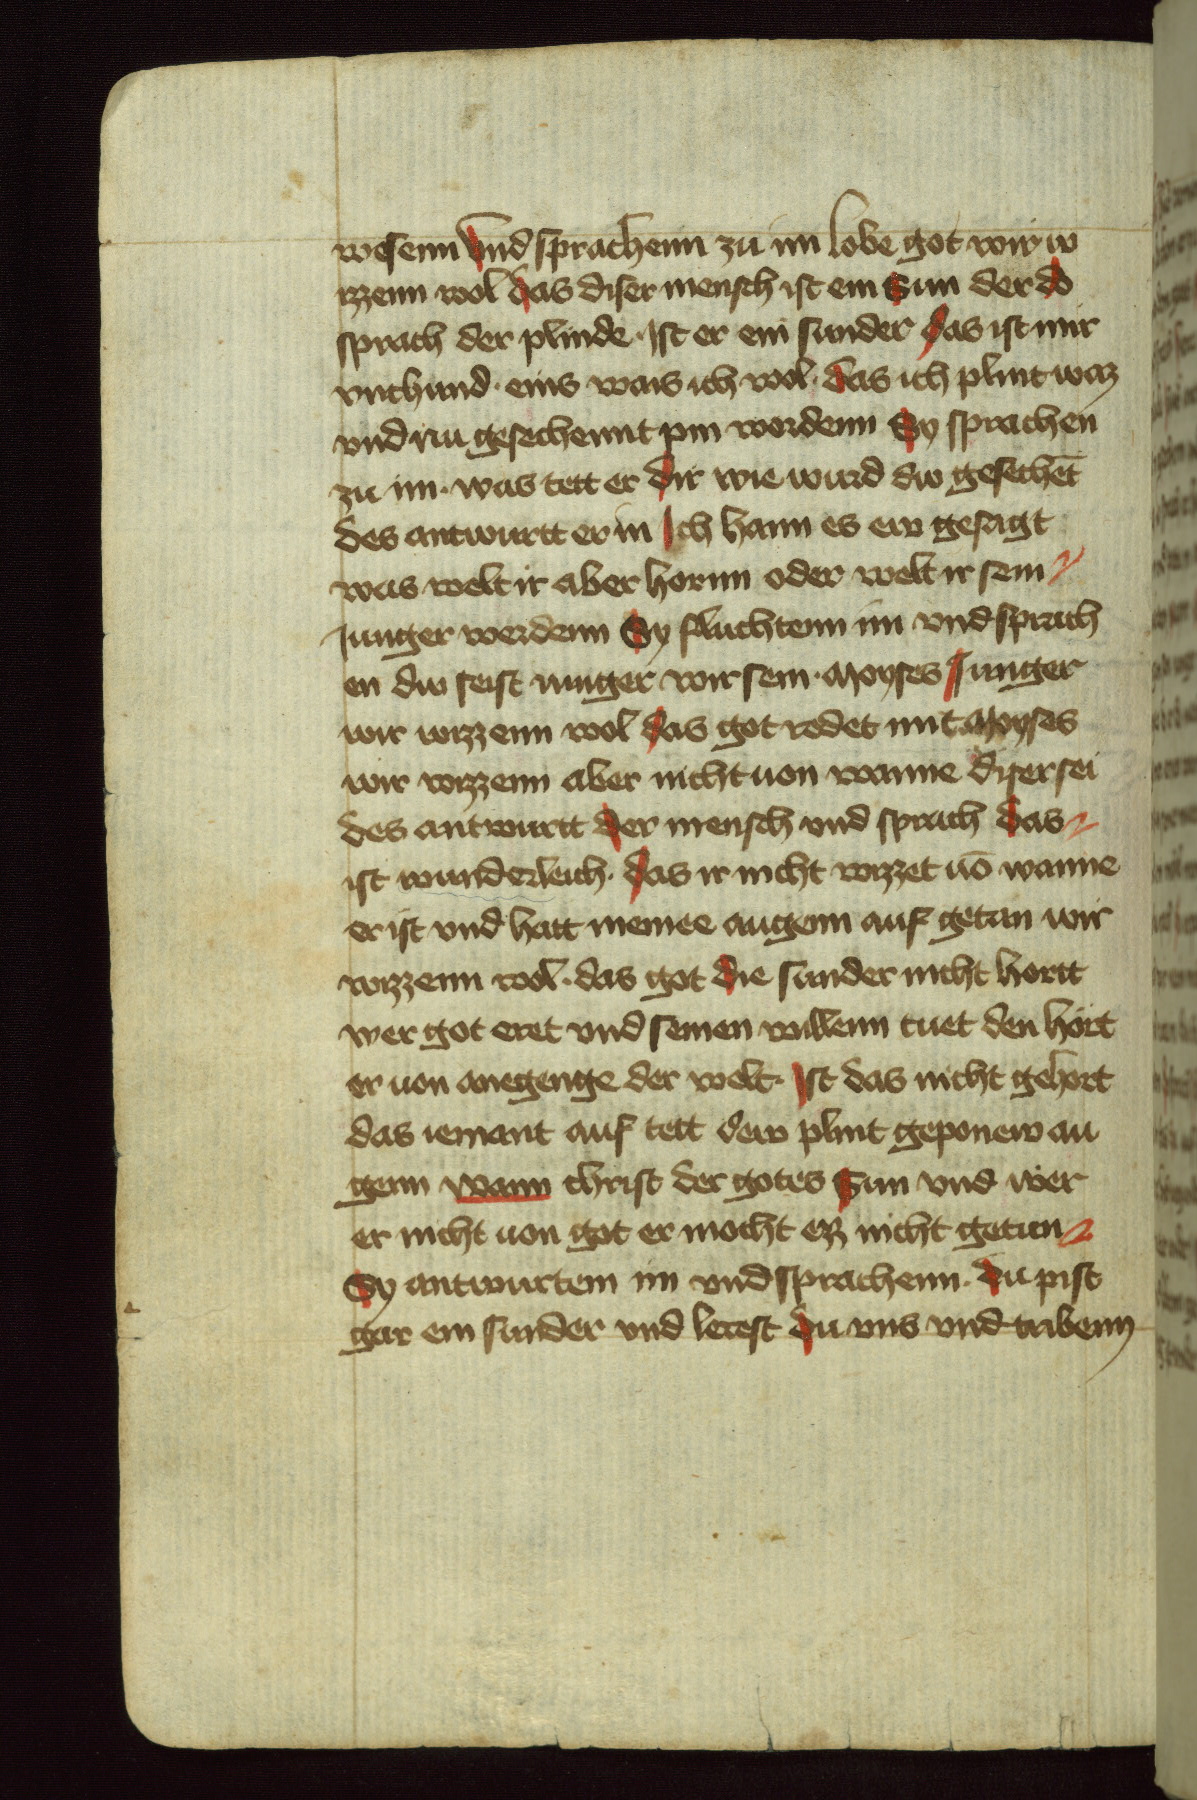 wesenn vnd sprachenn zu im lobe got wir w
izzenn wol das diser mensch ist ein Sun der do
sprach der plinde · Ist er ein sunder das ist mir
vnchund · eins wais ich wol · das ich plint waz
vnd nu gesechennt pin wordenn Sy sprachen
zu im · was tett er dir wie wurd dw gesechēt
des antwurtt er in Ich hann es ew gesagt
was welt ir aber hornn oder welt ir sein
Junger werdenn Sy fluchtenn im vnd sprach
en dw seist iunger wir sein · Moyses Junger
wir wizzenn wol das got redet mit Moyses
wir wizzenn aber nicht uon wanne diser sei
des antwurtt der mensch vnd sprach das
ist wunderleich · das ir nicht wizzet uō wanne
er ist vnd hatt meinee augenn auf getan wir
wizzenn wol · das got die sunder nicht hortt
wer got eret vnd seinen willenn tuet den hort
er uon anegenge der welt · Ist das nicht gehort
das iemant auf tett dew plint geponew au
genn wann christ der gotes Sun vnd wer
er nicht uon got er mocht ez nicht getun
Sy antwurtem im vnd sprachenn · du pist
gar ein sunder vnd lerest du vns vnd tribenn